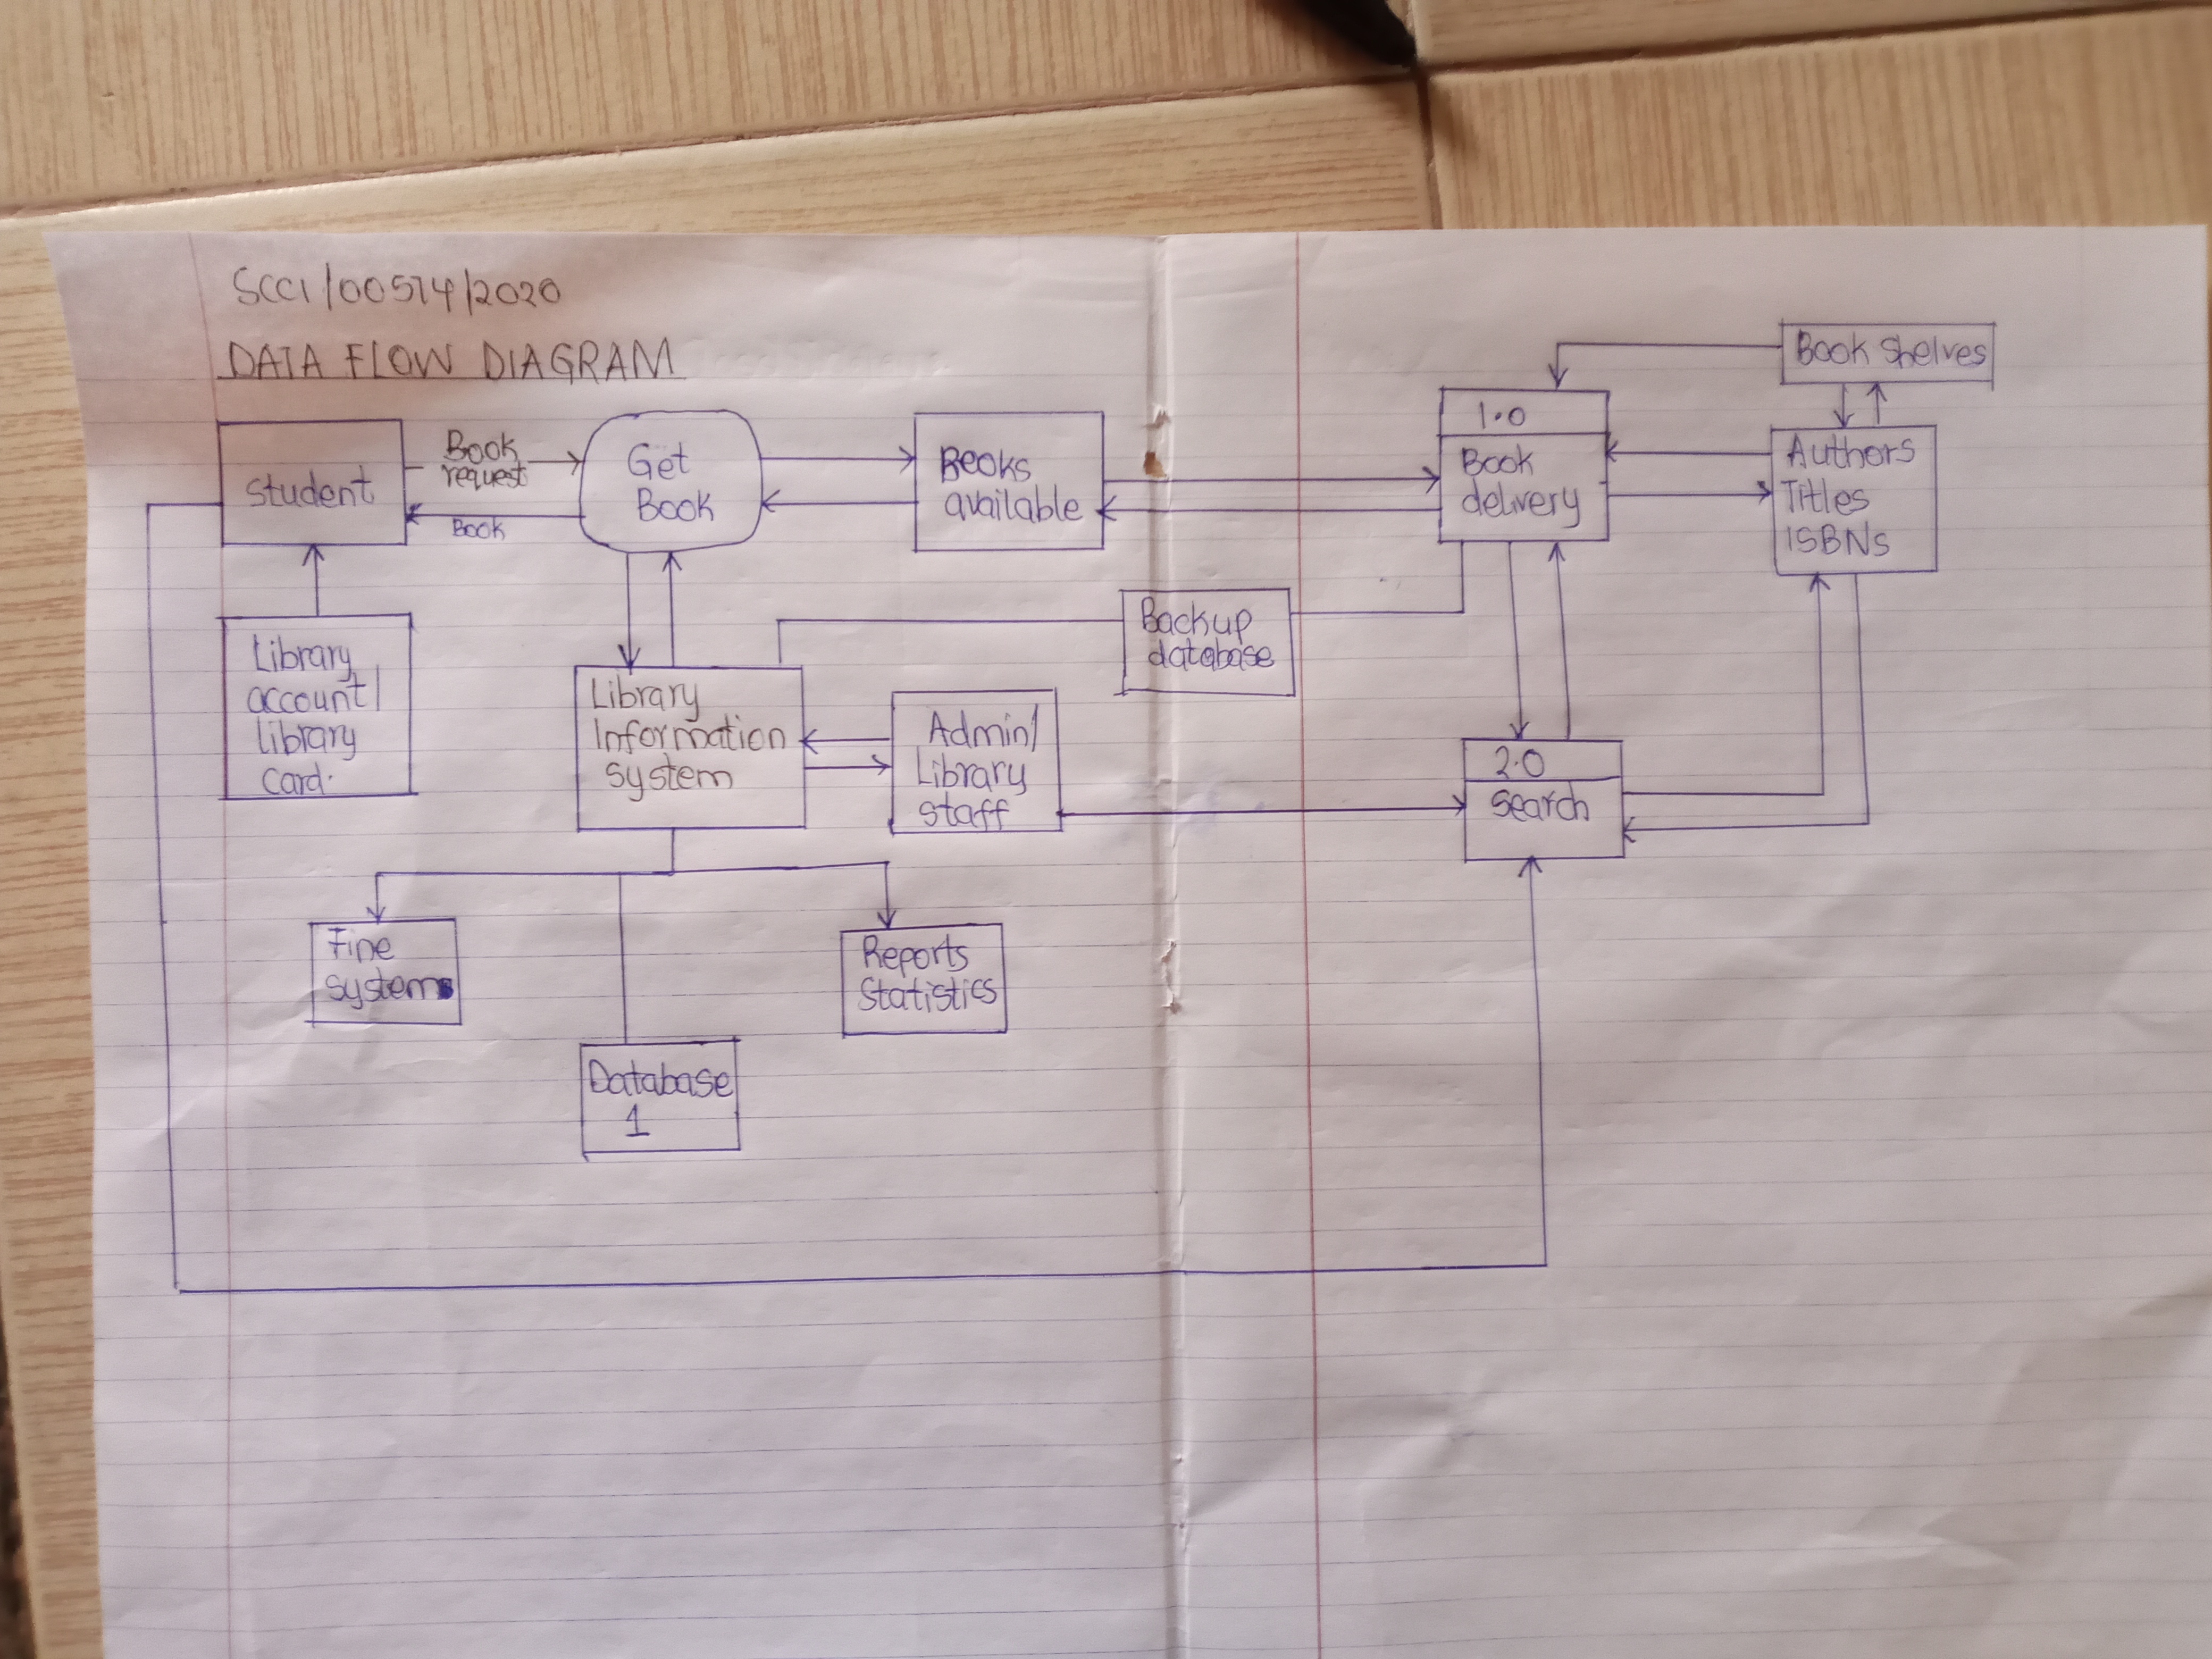 SCCI/00574/2020
DATA FLOW DIAGRAM
Student
Book
request
Book
Get
Book
Books
available
1.0
Book
delivery
Book Shelves
Authors
Titles
ISBNs
Library
account/
library
card.
Library
Information
system
Admin/
Library
staff
Backup
database
2.0
Search
Fine
systems
Reports
Statistics
Database
1